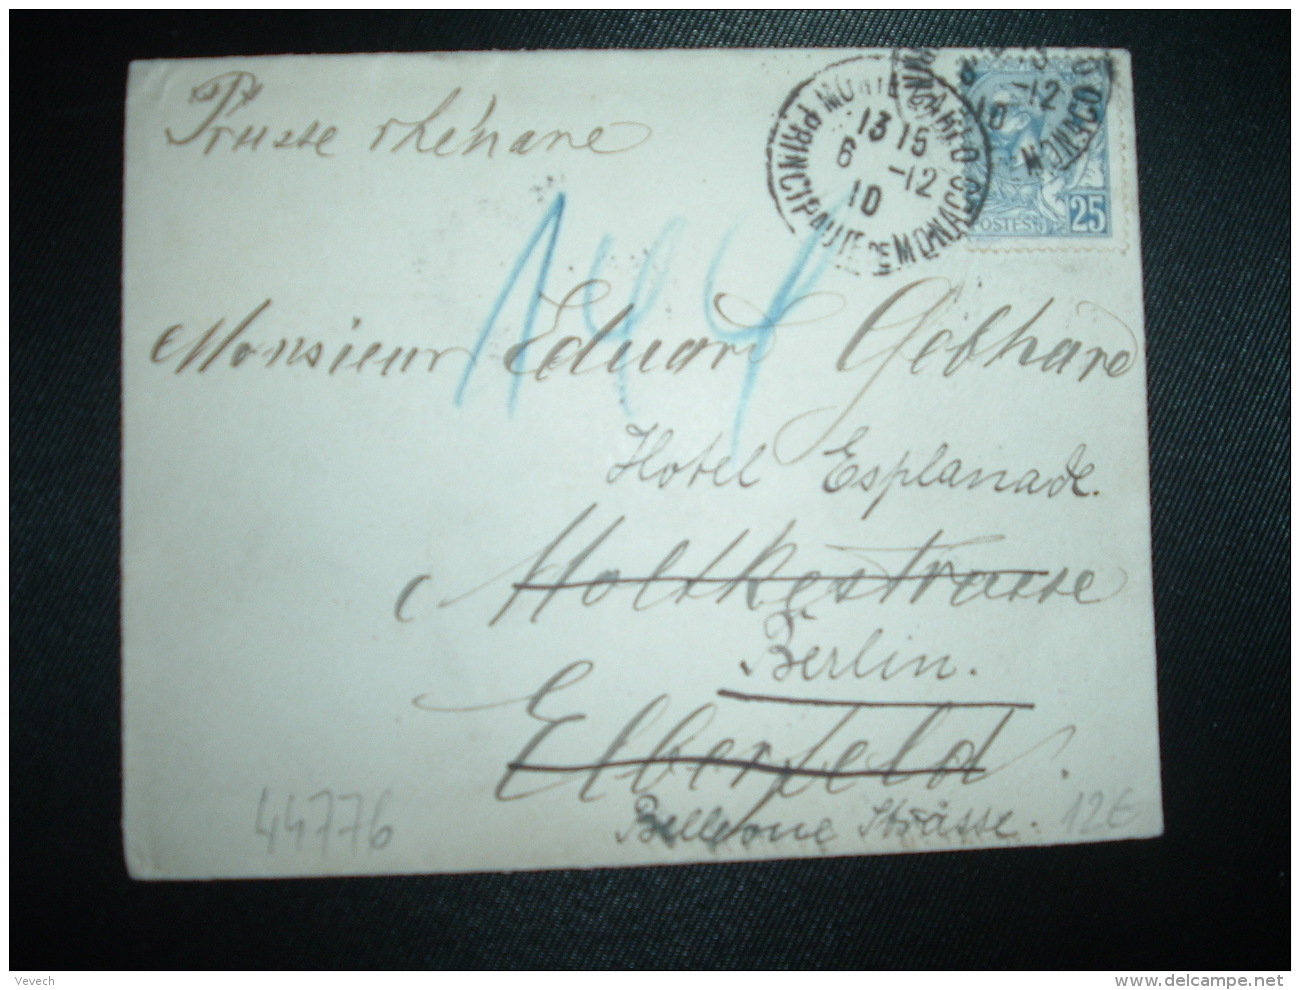 Prusse rhénane
MONTE-CARLO
PRINCIPAUTE DE MONACO
13 15
6 -12
10
-12
10
MONACO
POSTES
25
144
Monsieur Eduard Gebhard
Hotel Esplanade.
Moltkestrasse
Berlin.
Elberfeld.
Bellevue Strasse.
44776
12€
Vevech
www.delcampe.net